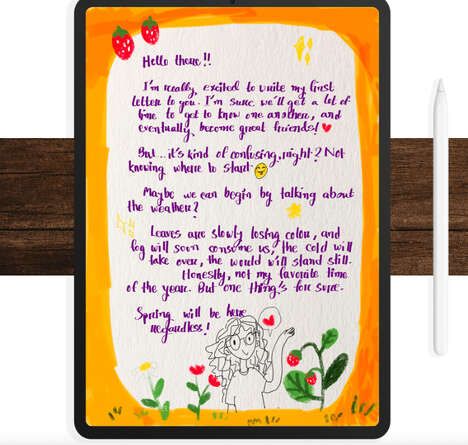 Hello there!!
I'm really excited to write my first
letter to you. I'm sure we'll get a lot of
time to get to know one another, and
eventually, become great friends!
But... it's kind of confusing, right? Not
knowing where to start
Maybe we can begin by talking about
the weather?
Leaves are slowly losing color, and
fog will soon consume us, the cold will
take over, the world will stand still.
Honestly, not my favorite time
of the year. But one thing's for sure.
Spring will be here
regardless!